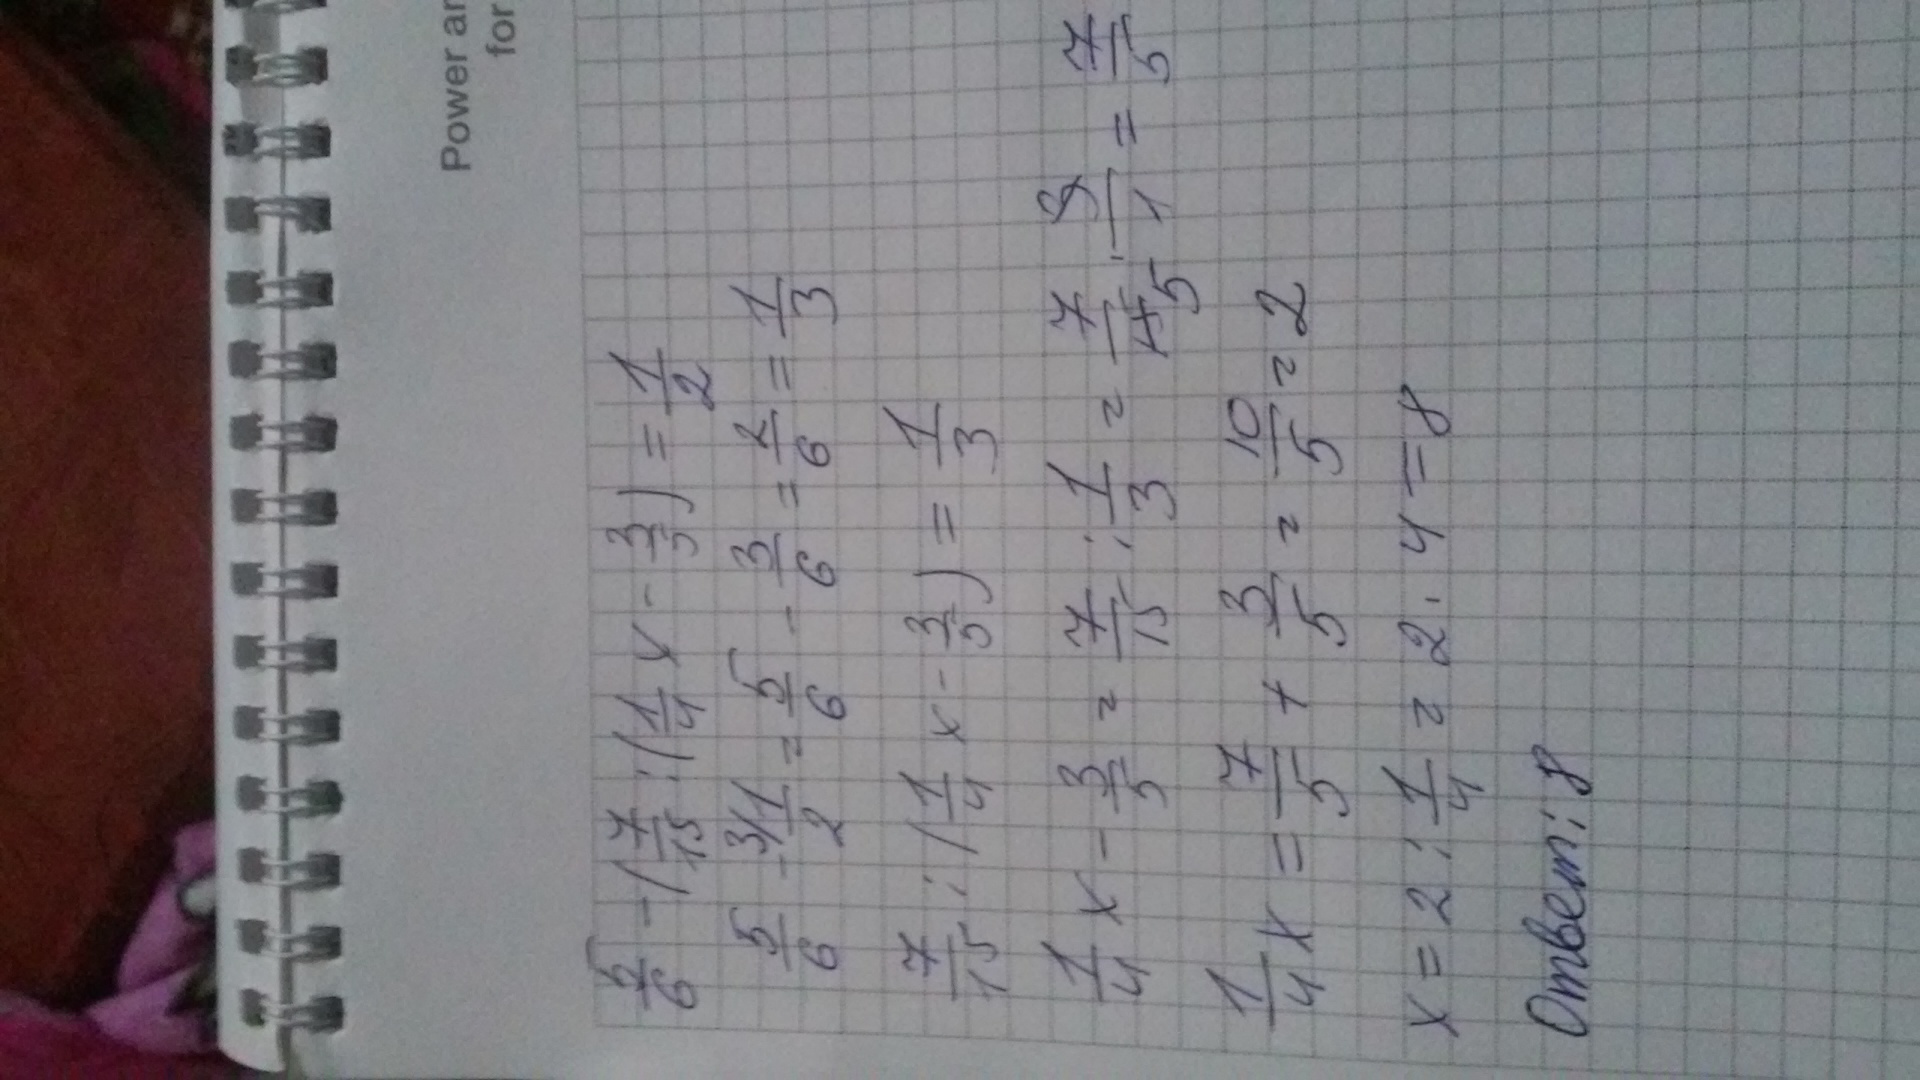 Power ar
for
5/6 - (7/15 : (1/4 x - 3/5) = 1/2
5/6 - 3/1/2 = 5/6 - 3/6 = 2/6 = 1/3
7/15 : (1/4 x - 3/5) = 1/3
1/4 x - 3/5 = 7/15 : 1/3 = 7/15 5 · 3/1 = 7/5
1/4 x = 7/5 + 3/5 = 10/5 = 2
x = 2 : 1/4 = 2 · 4 = 8
Ответ: 8